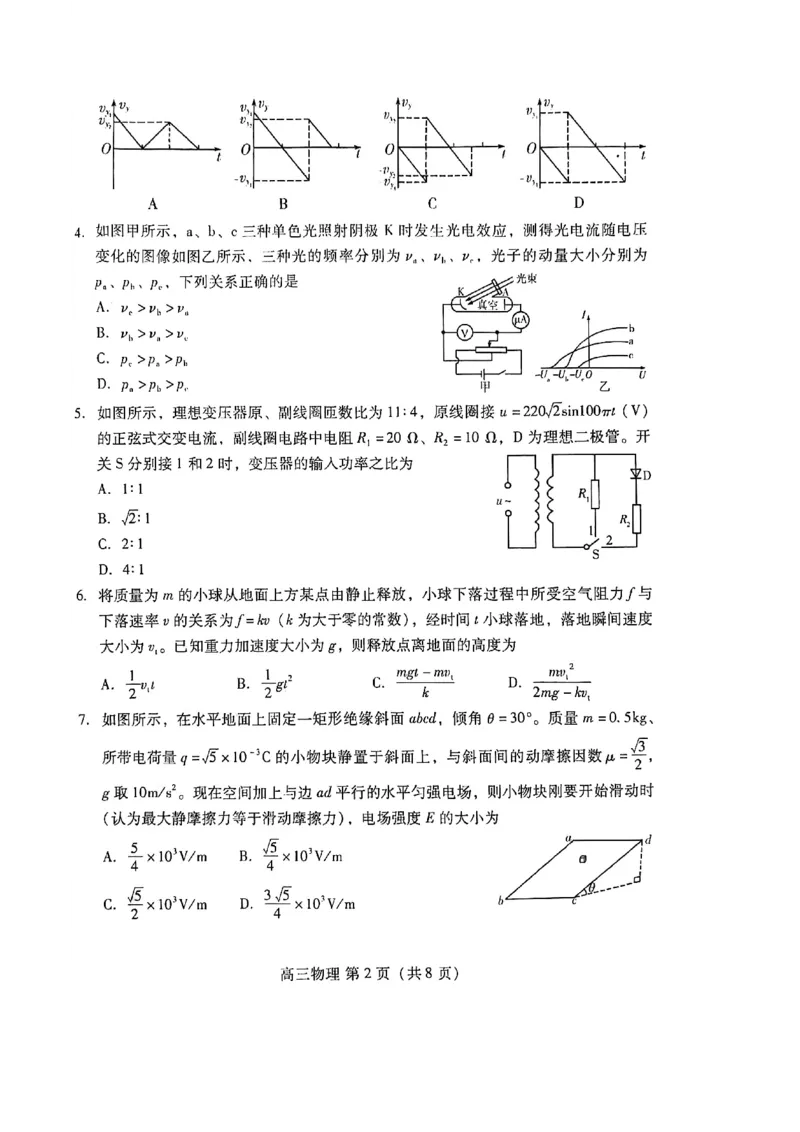 v_y₁ v_y v_y₂ O t
v_y₁ v_y v_y₂ O t -v_y₁
v_y v_y₁ O t -v_y₂ -v_y₁
v_y v_y₁ O t -v_y₁
A B C D
4. 如图甲所示，a、b、c三种单色光照射阴极 K 时发生光电效应，测得光电流随电压
变化的图像如图乙所示，三种光的频率分别为 ν_a、ν_b、ν_c，光子的动量大小分别为
p_a、p_b、p_c，下列关系正确的是
A. ν_c＞ν_b＞ν_a
B. ν_b＞ν_a＞ν_c
C. p_c＞p_a＞p_b
D. p_a＞p_b＞p_c
光束 K A 真空 μA V 甲
I b a c -U_a -U_b -U_c O U 乙
5. 如图所示，理想变压器原、副线圈匝数比为 11∶4，原线圈接 u = 220√2sin100πt（V）
的正弦式交变电流，副线圈电路中电阻 R₁ = 20 Ω、R₂ = 10 Ω，D 为理想二极管。开
关 S 分别接 1 和 2 时，变压器的输入功率之比为
A. 1∶1
B. √2∶1
C. 2∶1
D. 4∶1
u~ R₁ D R₂ 1 2 S
6. 将质量为 m 的小球从地面上方某点由静止释放，小球下落过程中所受空气阻力 f 与
下落速率 v 的关系为 f = kv（k 为大于零的常数），经时间 t 小球落地，落地瞬间速度
大小为 v₁。已知重力加速度大小为 g，则释放点离地面的高度为
A. 1/2 v₁t B. 1/2 gt² C. (mgt − mv₁)/k D. mv₁²/(2mg − kv₁)
7. 如图所示，在水平地面上固定一矩形绝缘斜面 abcd，倾角 θ = 30°。质量 m = 0.5kg、
所带电荷量 q = √5 × 10⁻³C 的小物块静置于斜面上，与斜面间的动摩擦因数 μ = √3/2，
g 取 10m/s²。现在空间加上与边 ad 平行的水平匀强电场，则小物块刚要开始滑动时
（认为最大静摩擦力等于滑动摩擦力），电场强度 E 的大小为
A. 5/4 × 10³V/m B. √5/4 × 10³V/m
C. √5/2 × 10³V/m D. 3√5/4 × 10³V/m
a d b c θ
高三物理 第 2 页（共 8 页）